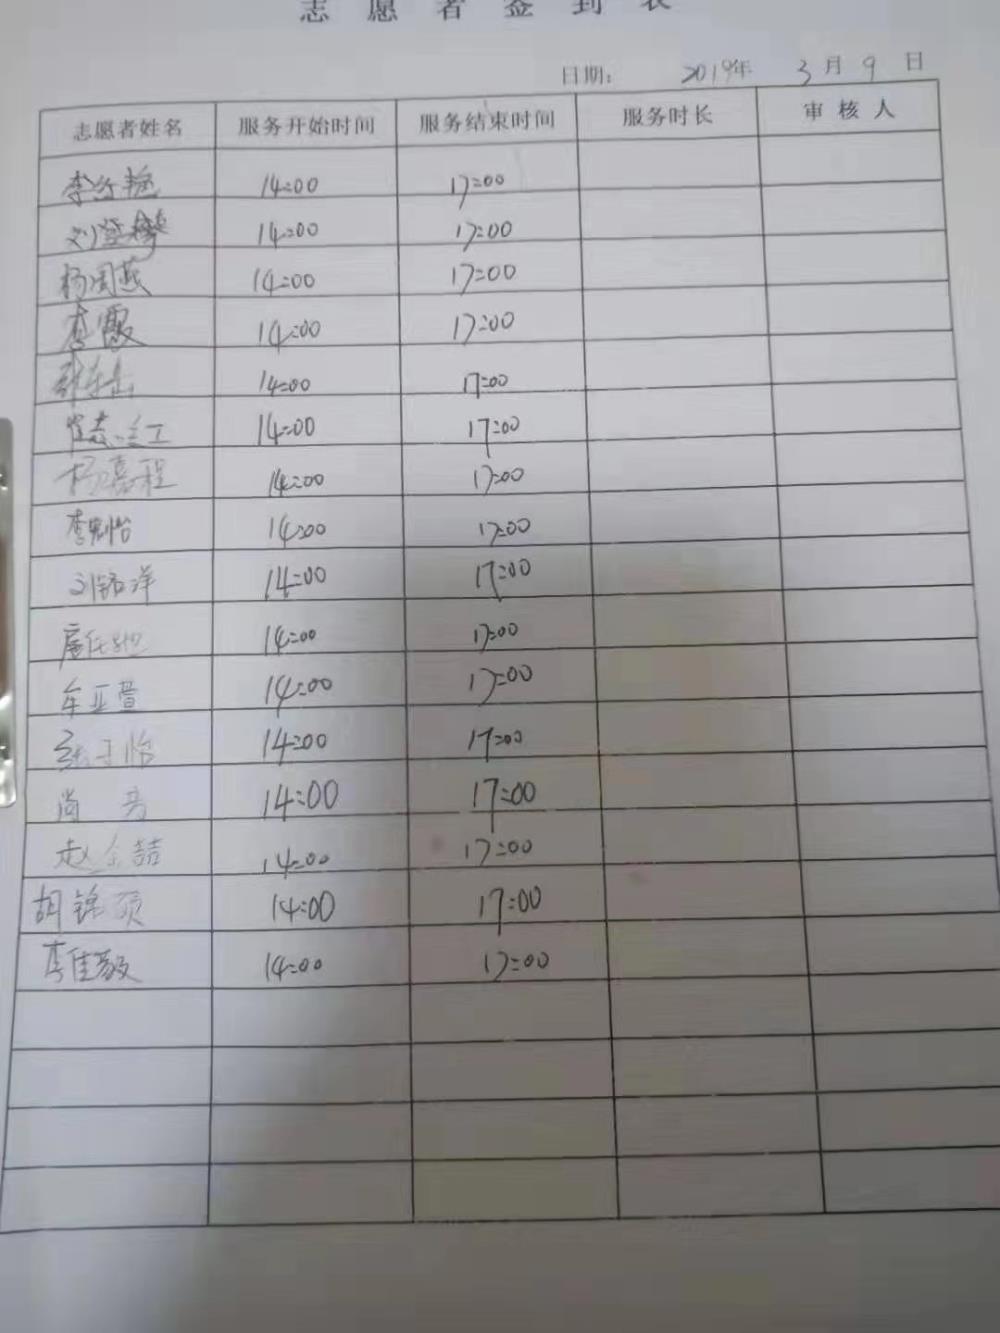 志愿者签到表
日期: 2019年 3月 9日
志愿者姓名 服务开始时间 服务结束时间 服务时长 审核人
14:00 17:00
14:00 17:00
杨国燕 14:00 17:00
李霞 14:00 17:00
14:00 17:00
14:00 17:00
杨嘉程 14:00 17:00
李 怡 14:00 17:00
刘铭洋 14:00 17:00
14:00 17:00
牟亚萱 14:00 17:00
张子怡 14:00 17:00
尚 14:00 17:00
赵金喆 14:00 17:00
胡锦硕 14:00 17:00
李佳毅 14:00 17:00